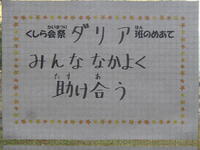 くしら会祭 ダリア 班のめあて
みんななかよく
助け合う